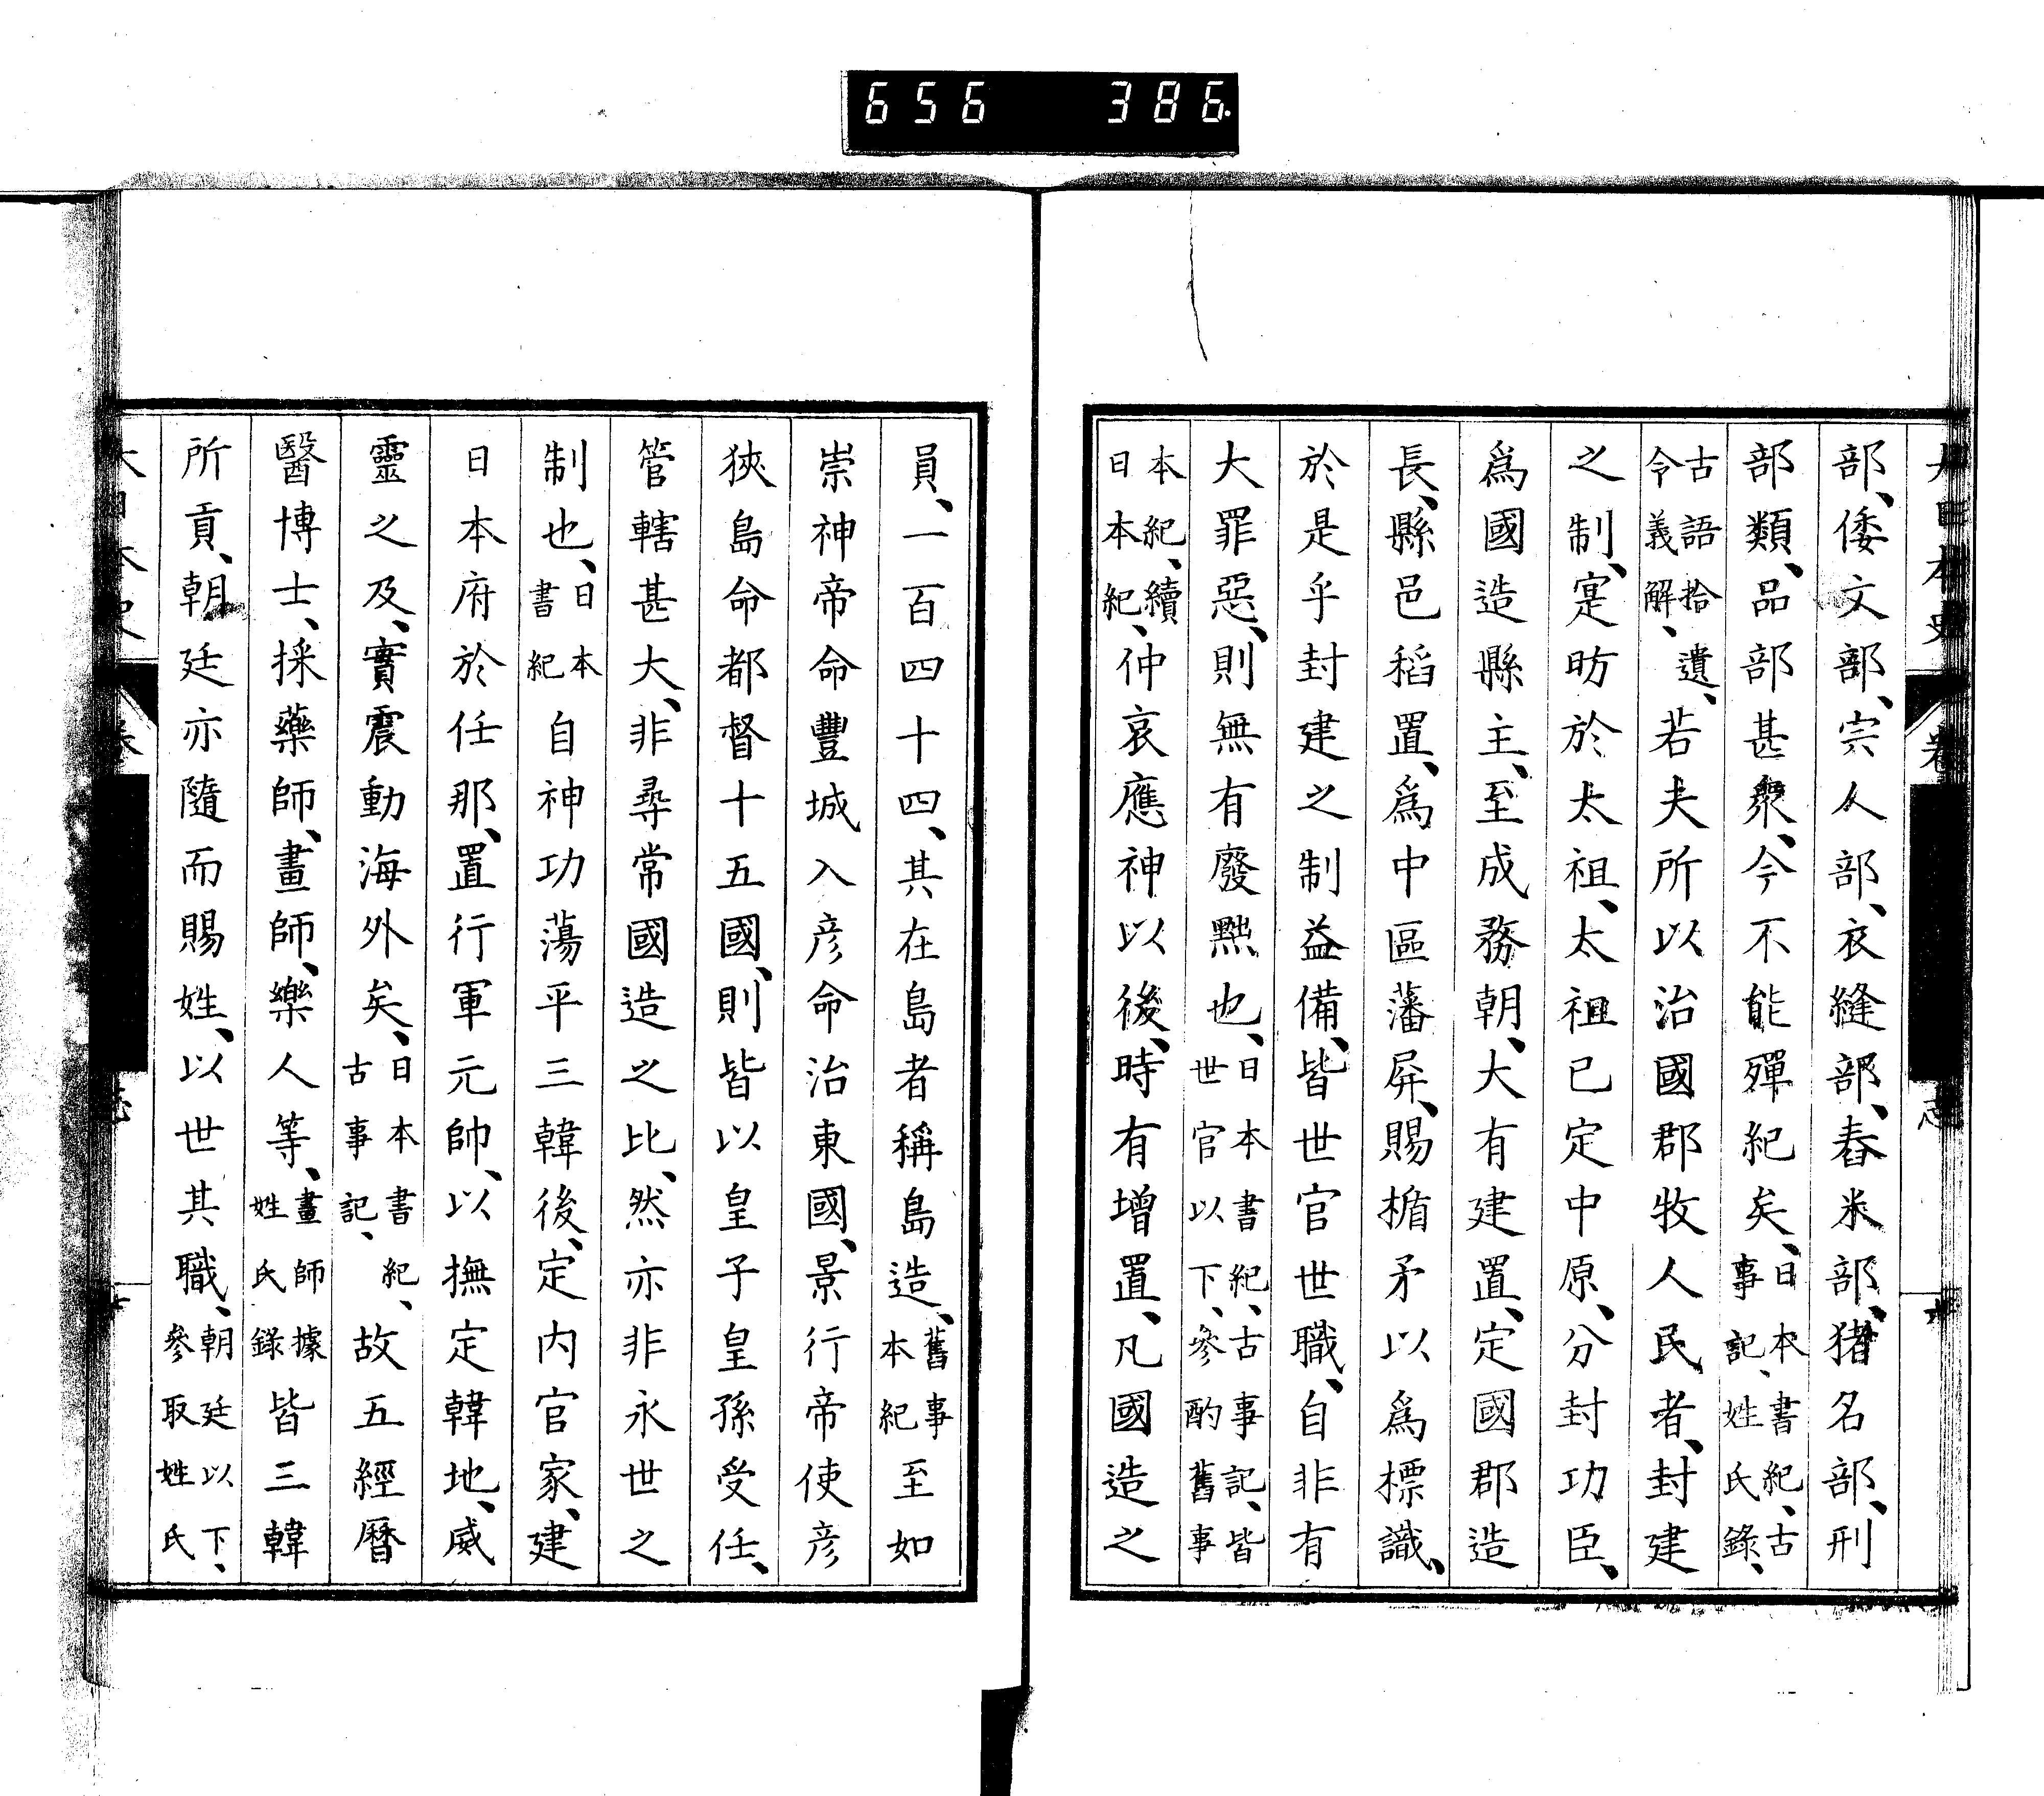 656 386
部、倭文部、宍人部、衣縫部、舂米部、猪名部、刑
部類、品部甚衆、今不能殫紀矣、日本書紀、古事記、姓氏錄、
古語拾遺、令義解、若夫所以治國郡牧人民者、封建
之制、寔昉於太祖、太祖已定中原、分封功臣、
爲國造縣主、至成務朝、大有建置、定國郡造
長、縣邑稻置、爲中區藩屏、賜楯矛以爲標識、
於是乎封建之制益備、皆世官世職、自非有
大罪惡、則無有廢黜也、日本書紀、古事記、皆世官以下、參酌舊事
本紀、續日本紀、仲哀應神以後、時有增置、凡國造之
員、一百四十四、其在島者稱島造、舊事本紀至如
崇神帝命豐城入彥命治東國、景行帝使彥
狹島命都督十五國、則皆以皇子皇孫受任、
管轄甚大、非尋常國造之比、然亦非永世之
制也、日本書紀自神功蕩平三韓後、定內官家、建
日本府於任那、置行軍元帥、以撫定韓地、威
靈之及、實震動海外矣、日本書紀、古事記、故五經曆
醫博士、採藥師、畫師、樂人等、畫師據姓氏錄皆三韓
所貢、朝廷亦隨而賜姓、以世其職、朝廷以下、參取姓氏